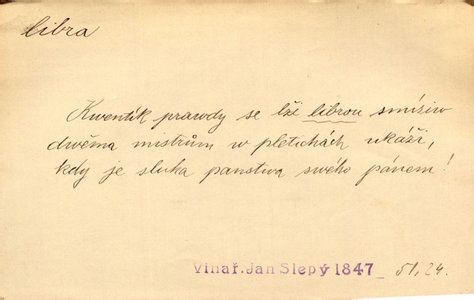 libra
Kwentík prawdy se lží librou smísiw
dwěma mistrům w pletichách ukáži,
kdy je sluha panstwa swého pánem!
Vinař. Jan Slepý 1847 51, 24.